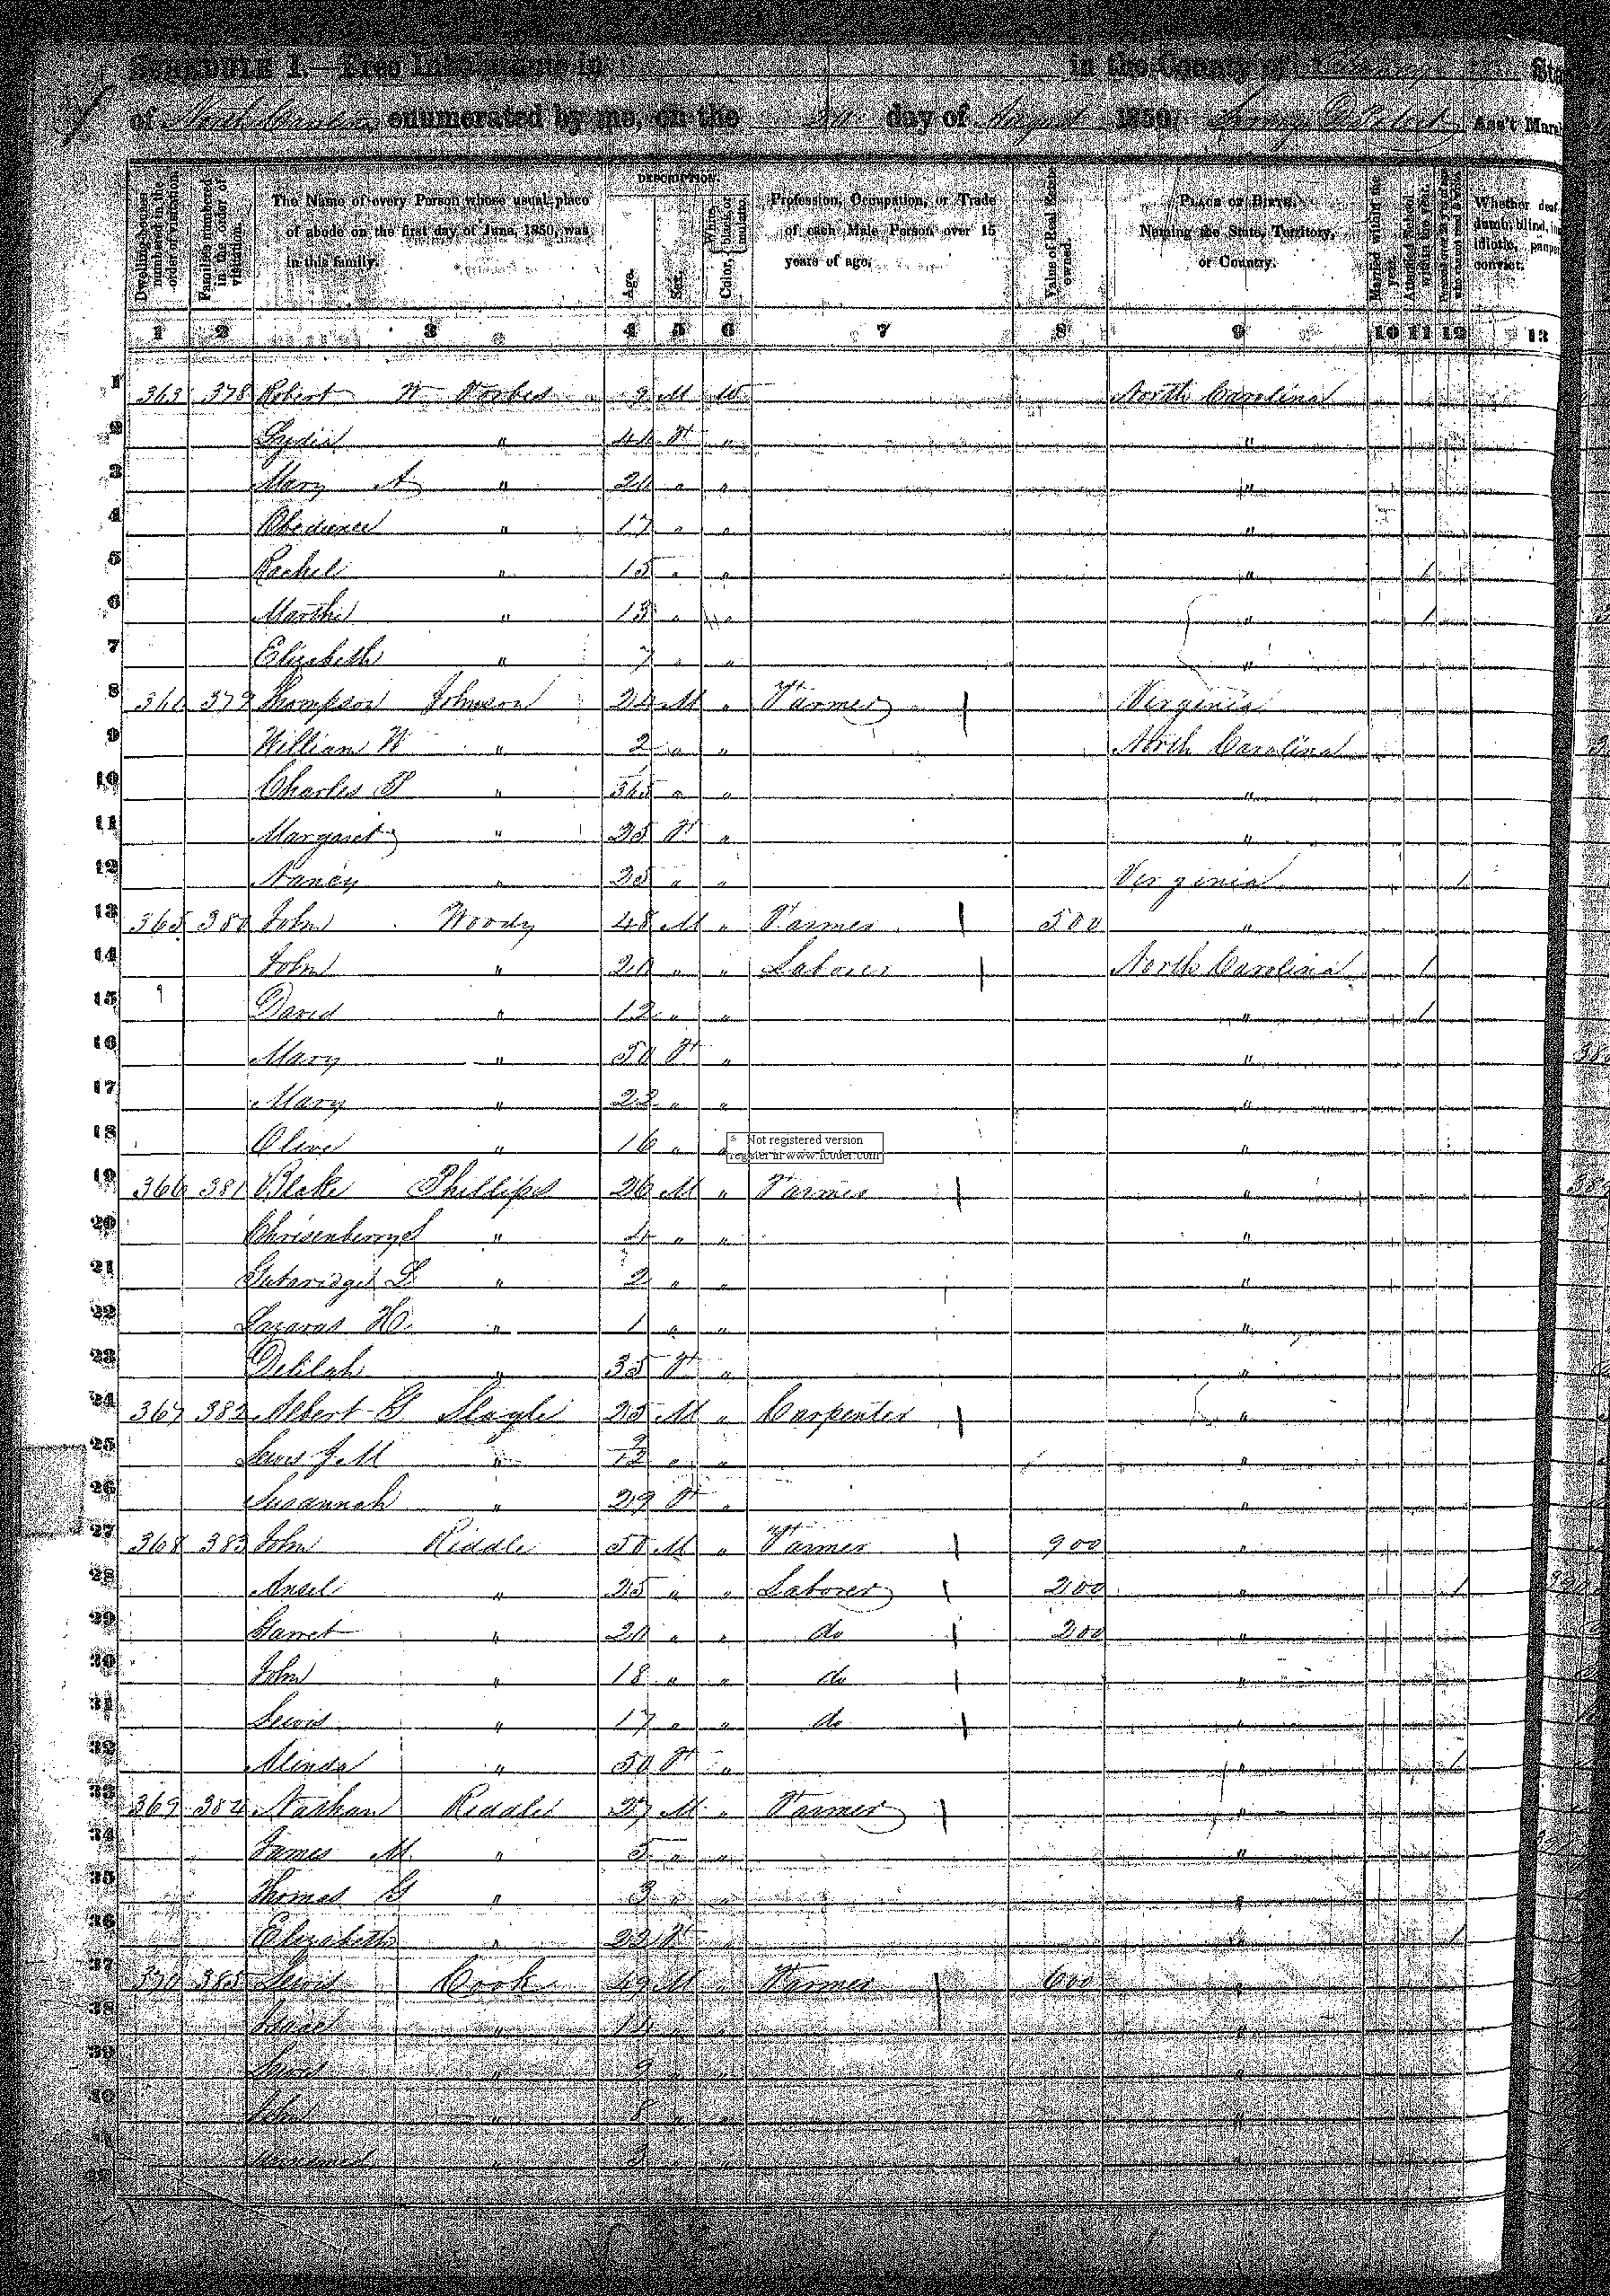 SCHEDULE I.—Free Inhabitants in in the County of State
of North Carolina enumerated by me, on the day of August 1850. Ass't Marshal
DESCRIPTION.
Dwelling-houses numbered in the order of visitation.
Families numbered in the order of visitation.
The Name of every Person whose usual place of abode on the first day of June, 1850, was in this family.
Age.
Sex.
Color, White, black, or mulatto.
Profession, Occupation, or Trade of each Male Person over 15 years of age.
Value of Real Estate owned.
PLACE OF BIRTH. Naming the State, Territory, or Country.
Married within the year.
Attended School within the year.
Persons over 20 y'rs of age who cannot read & write.
Whether deaf, dumb, blind, idiotic, pauper convict.
1 2 3 4 5 6 7 8 9 10 11 12 13
1 363 378 Robert W Forbes 9 M W North Carolina
2 Lydia " 44 F " "
3 Mary A " 20 " " "
4 Obedience " 17 " " "
5 Rachel " 15 " " " 1
6 Martha " 13 " " " 1
7 Elizabeth " 7 " " "
8 364 379 Thompson Johnson 24 M " Farmer Virginia
9 William W " 2 " " North Carolina
10 Charles " " " "
11 Margaret " 25 F " "
12 Nancy " 25 " " Virginia 1
13 365 380 John Woody 48 M " Farmer 500 "
14 John " 20 " " Laborer North Carolina 1
15 David " 12 " " " 1
16 Mary " 50 F " "
17 Mary " 22 " " "
18 Olive " 16 " " "
Not registered version
register in www.fcoder.com
19 366 381 Blake Phillips 26 M " Farmer "
20 Chrisenberry S " 4 " " "
21 Gutaridge L " 2 " " "
22 Lazarus H. " 1 " " "
23 Delilah " 35 F " "
24 367 382 Albert G Slagle 25 M " Carpenter "
25 J M " 9/12 " " "
26 Susannah " 29 F " "
27 368 383 John Riddle 50 M " Farmer 900 "
28 Ansel " 25 " " Laborer 200 " 1
29 Garret " 20 " " do 200 "
30 John " 18 " " do "
31 Lewis " 17 " " do "
32 Alinda " 50 F " " 1
33 369 384 Nathan Riddle 27 M " Farmer "
34 James M. " 5 " " "
35 Thomas G " 3 " " "
36 Elizabeth " 22 F " " 1
37 370 385 Lewis Cook 49 M " Farmer 600 "
38 " 14 " " "
39 " 9 " " "
40 John " 8 " " "
" 3 " "